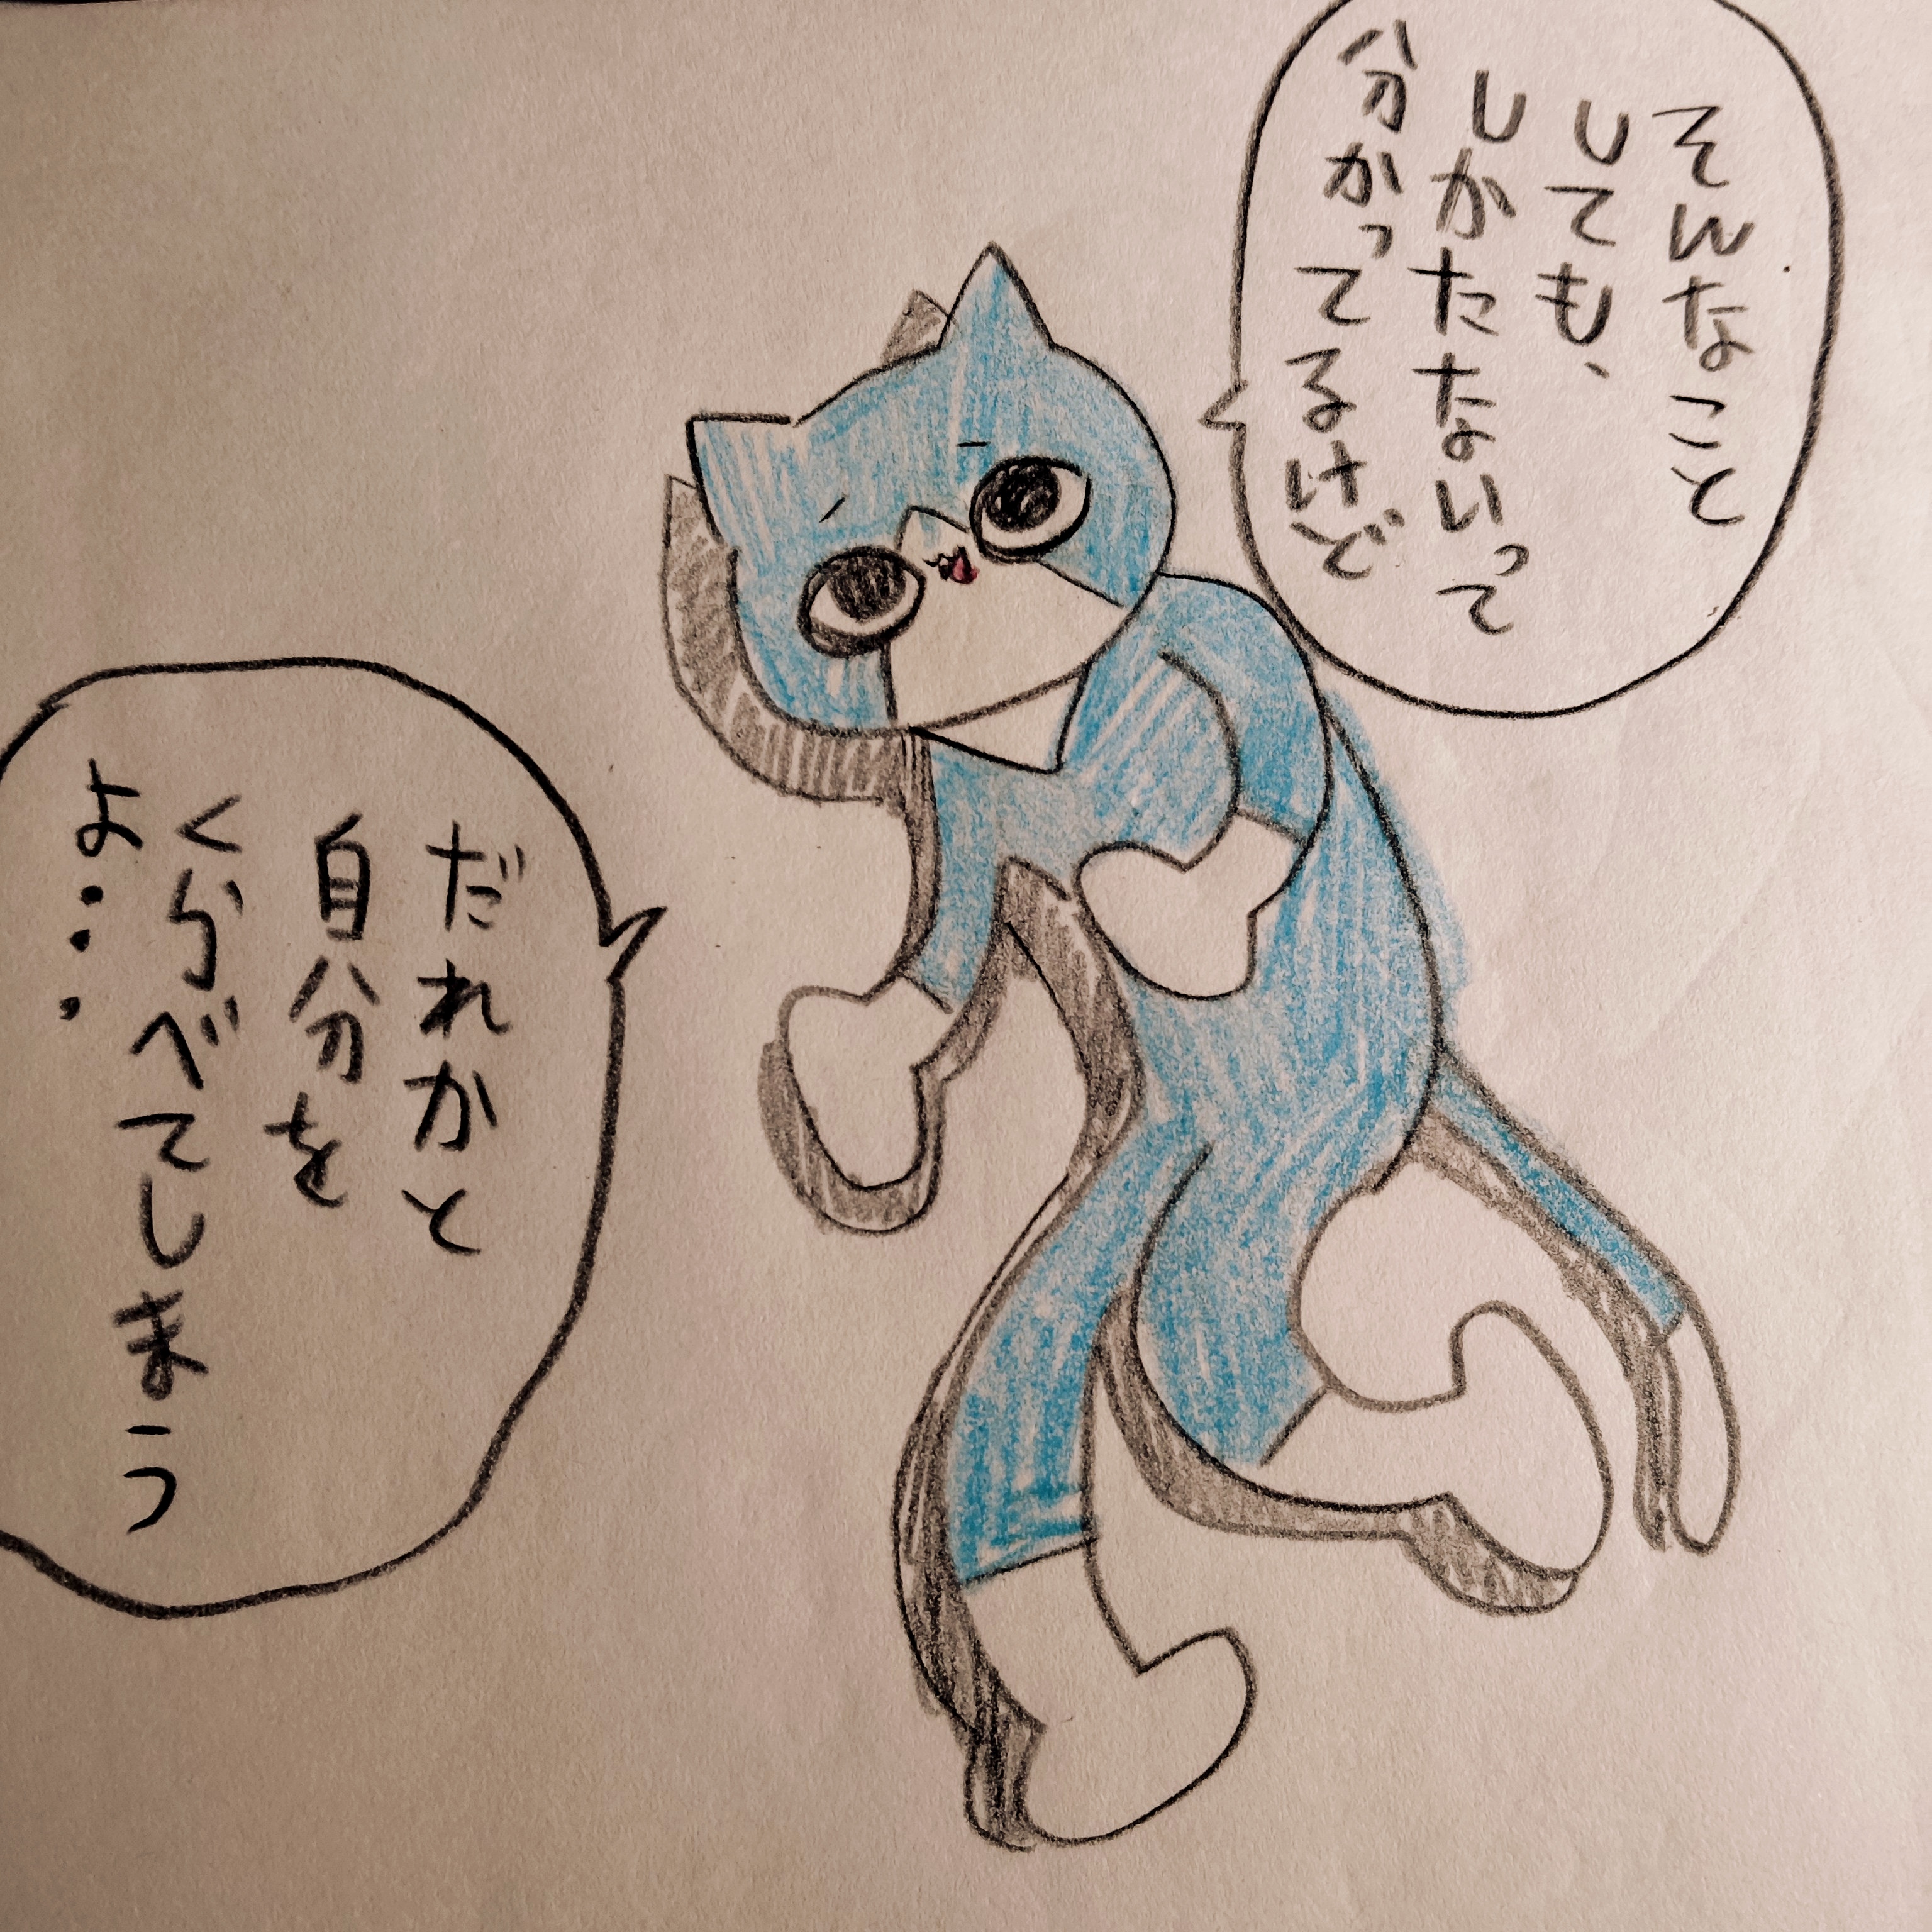 そんなこと
しても、
しかたないって
分かってるけど
だれかと
自分を
くらべてしまう
よ・・・